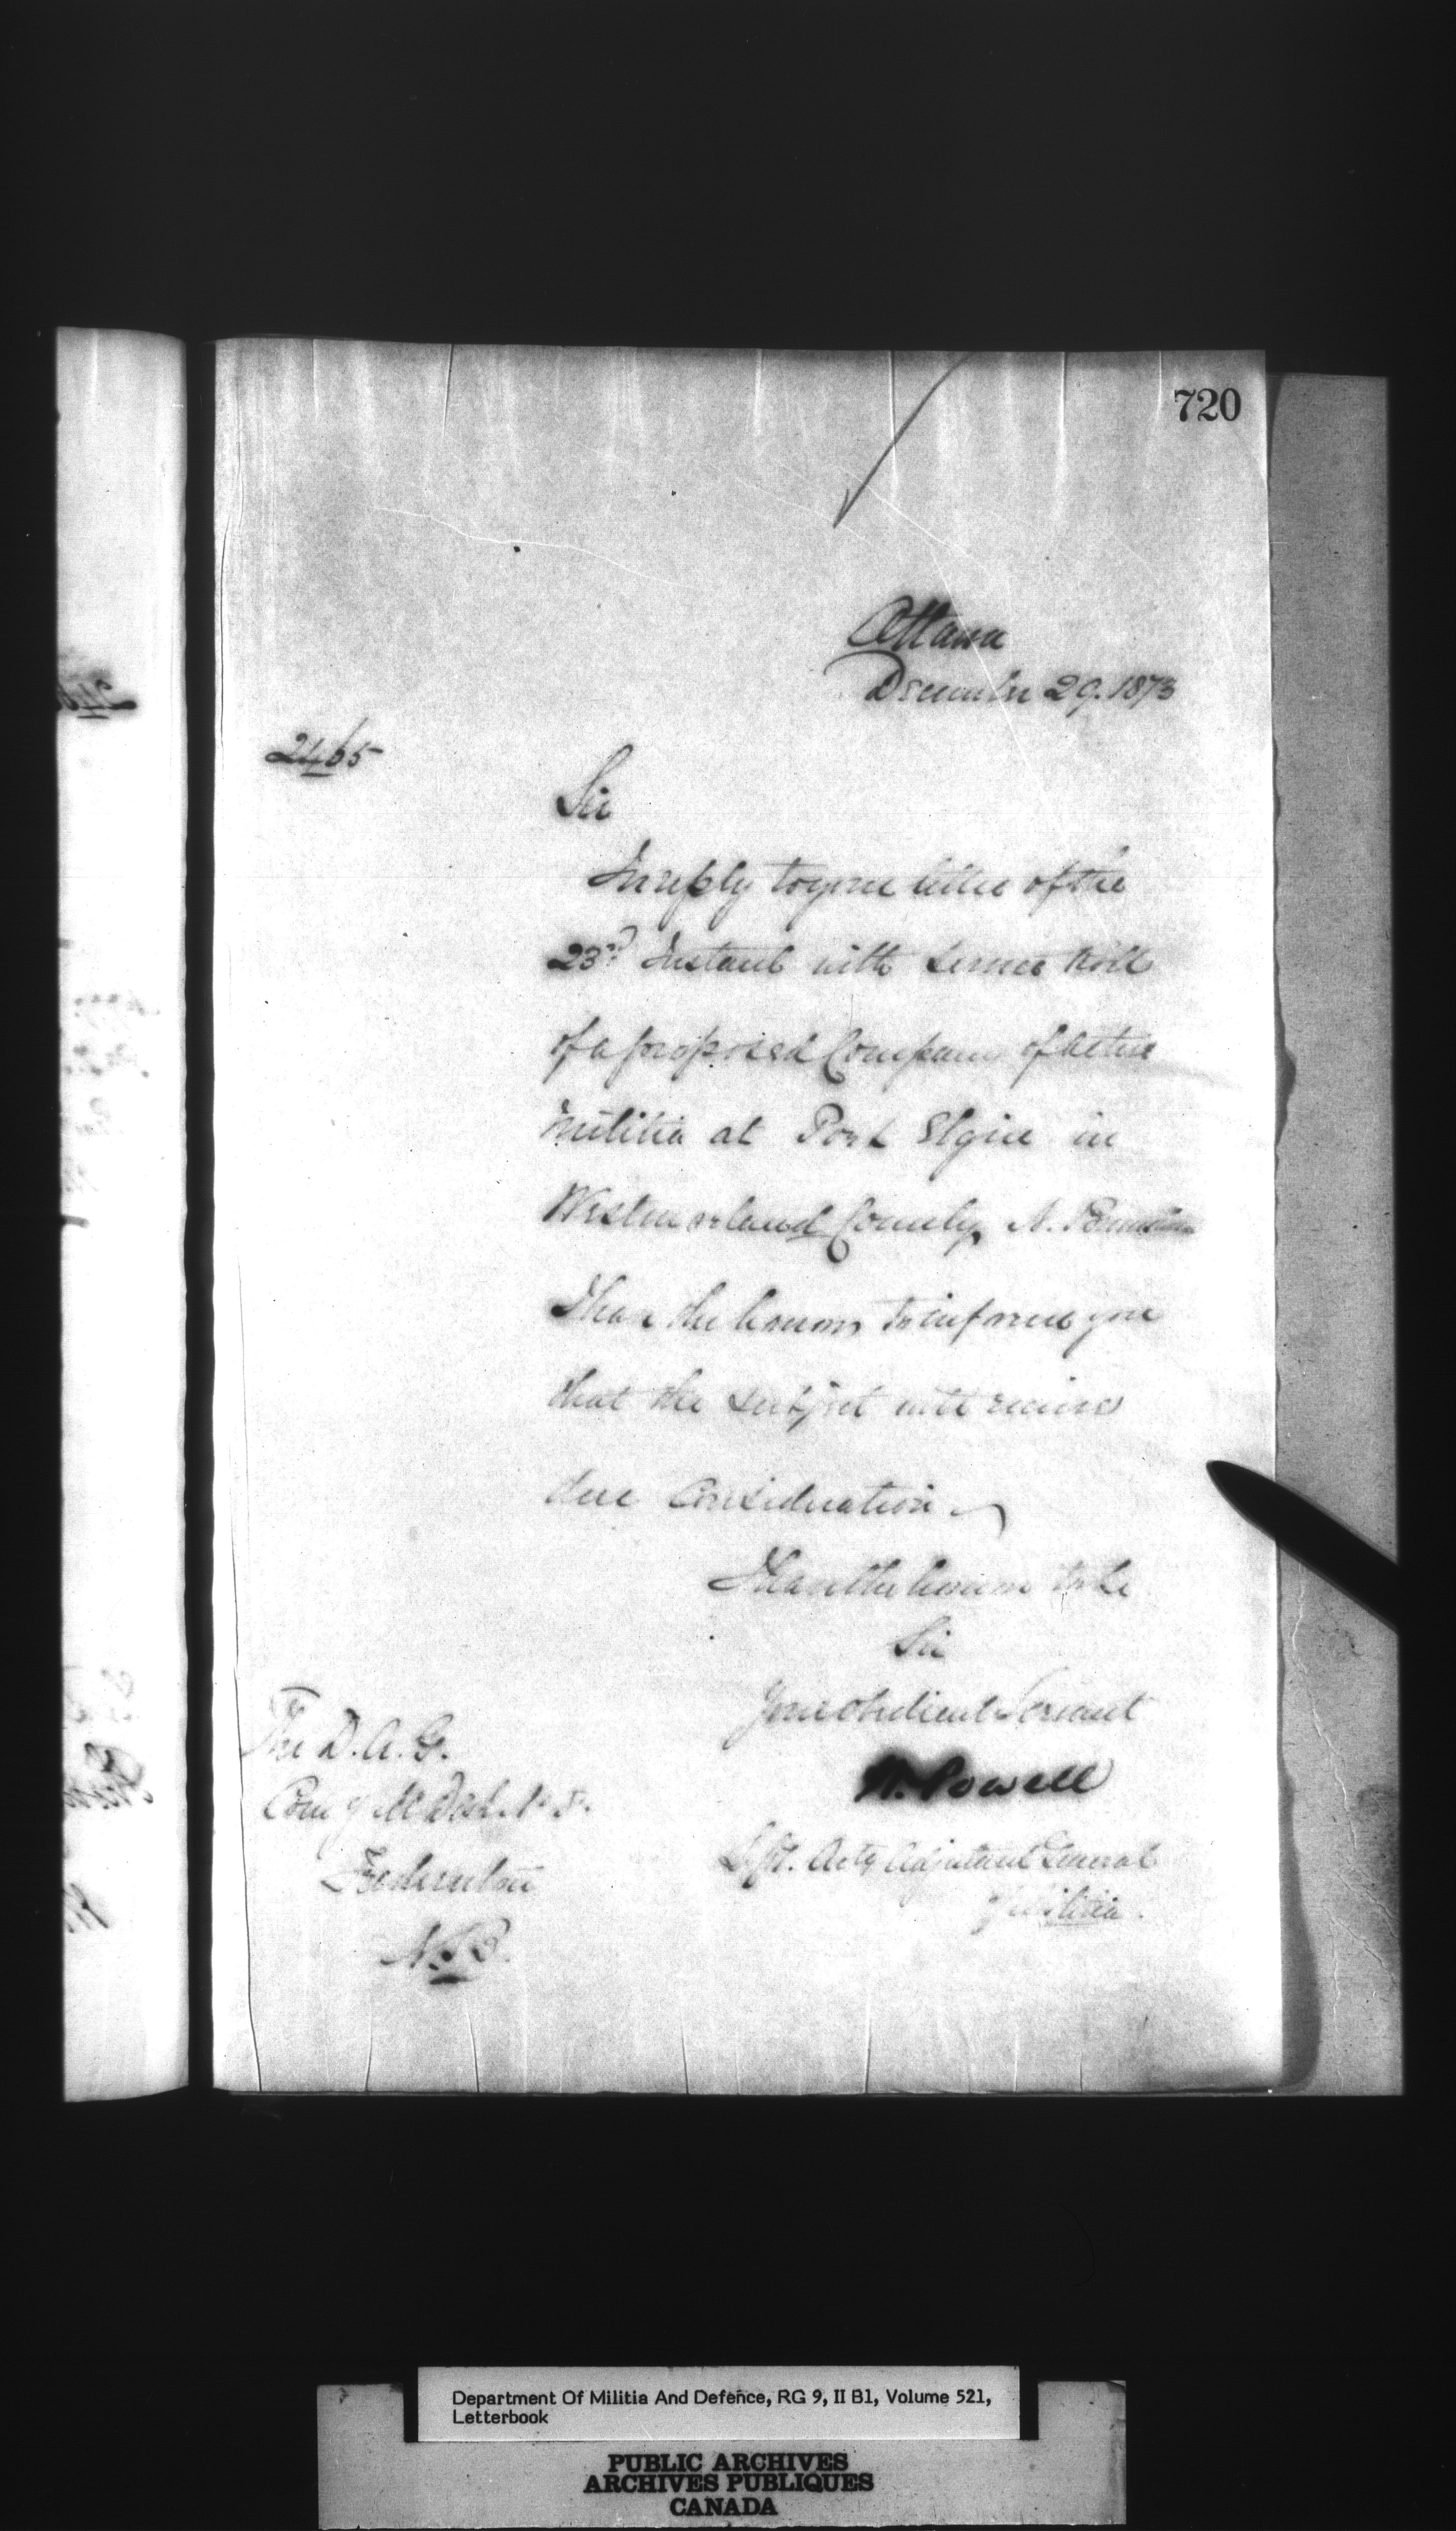 720
Ottawa
December 29. 1873
2465
Sir
In reply to your letter of the
23rd Instant with Service Roll
of a proposed Company of Active
Militia at Port Elgin in
Westmorland County, N. Brunswick
I have the honour to inform you
that the subject will receive
due Consideration
I have the honour to be
Sir
Your obedient Servant
W. Powell
Actg Adjutant General
of Militia.
The D.A.G.
Com'g M Dist. No
Fredericton
N.B.
Department Of Militia And Defence, RG 9, II B1, Volume 521,
Letterbook
PUBLIC ARCHIVES
ARCHIVES PUBLIQUES
CANADA